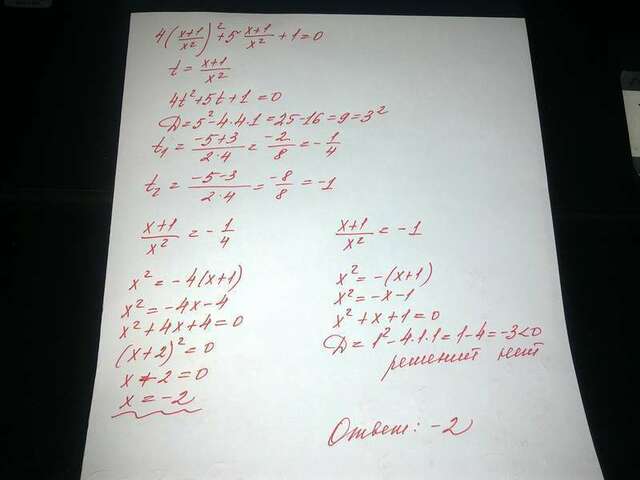 4(x+1/x²)²+5 x+1/x² +1=0
t = x+1/x²
4t²+5t+1=0
D=5²-4·4·1=25-16=9=3²
t₁ = -5+3/2·4 = -2/8 = -1/4
t₂ = -5-3/2·4 = -8/8 = -1
x+1/x² = -1/4
x² = -4(x+1)
x² = -4x-4
x²+4x+4=0
(x+2)²=0
x+2=0
x=-2
x+1/x² = -1
x² = -(x+1)
x² = -x-1
x²+x+1=0
D=1²-4·1·1=1-4=-3<0
решений нет
Ответ: -2